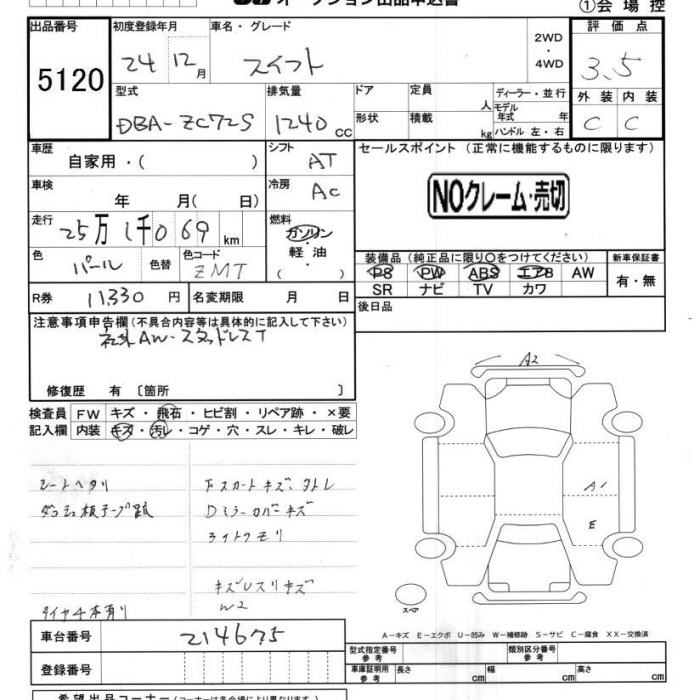 オークション出品申込書 ①会場控
出品番号 初度登録年月 車名・グレード 2WD・4WD 評価点
5120 24 12月 スイフト 3.5
型式 排気量 ドア 定員 人 ディーラー・並行 外装 内装
DBA-ZC72S 1240 CC 形状 積載 kg モデル年式 年 ハンドル 左・右 C C
車歴 自家用・( ) シフト AT セールスポイント (正常に機能するものに限ります)
車検 年 月( 日) 冷房 AC NOクレーム・売切
走行 25万1千069km 燃料 ガソリン・軽油・( )
色 パール 色替 色コード ZMT 装備品 (純正品に限り○をつけてください) 新車保証書
PS PW ABS エアB AW 有・無
R券 11,330円 名変期限 月 日 SR ナビ TV カワ
注意事項申告欄 (不具合内容等は具体的に記入して下さい) 後日品
社外AW-スタッドレスT
修復歴 有 〔箇所 〕
検査員 FW キズ・飛石・ヒビ割・リペア跡・×要
記入欄 内装 キズ・汚レ・コゲ・穴・スレ・キレ・破レ
A2
シートヘタリ Fスカートキズヨトレ
テープ跡 Dミラーカバーキズ
ライトクモリ
A1
E
キズ
W2
タイヤ4本有り
スペア
A-キズ E-エクボ U-凹み W-補修跡 S-サビ C-腐食 XX-交換済
車台番号 214675 型式指定番号 参考 類別区分番号 参考
登録番号 車庫証明用 参考 長さ cm 幅 cm 高さ cm
希望出品コーナー(コーナーは各会場により異なります)